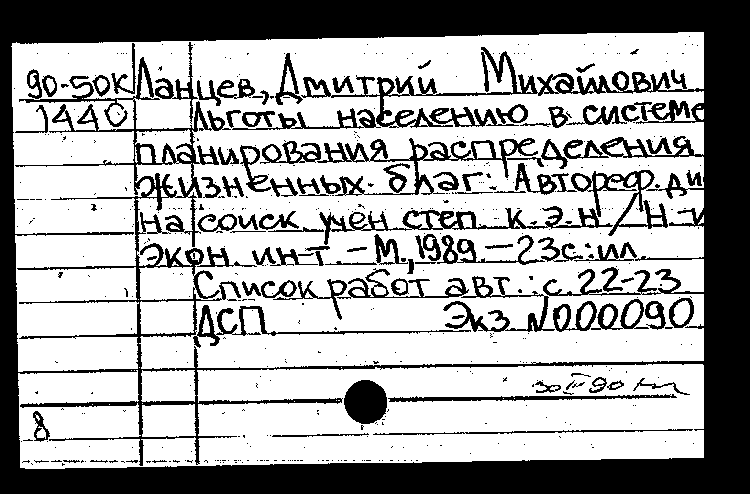 90-50К Ланцев, Дмитрий Михайлович
1440 Льготы населению в системе
планирования распределения
жизненных благ: Автореф. ди
на соиск. учен степ. к.э.н / Н.-и
Экон. ин-т. - М., 1989. - 23с.: ил.
Список работ авт.: с. 22-23
ДСП. Экз №000090
30 III 90
8